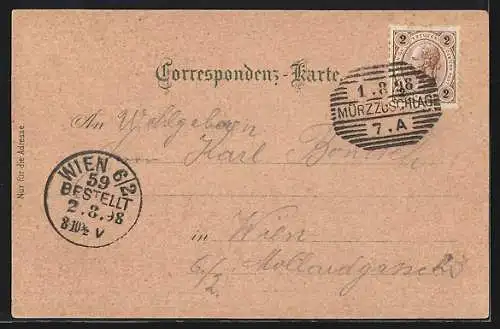 Correspondenz-Karte.
2 2
1.8.98
MÜRZZUSCHLAG
7.A
An Wohlgeborn
Herrn Karl
Nur für die Adresse.
WIEN 6/2
59
BESTELLT
2.8.98
8-10½ V
in Wien
6/2 Mollardgasse